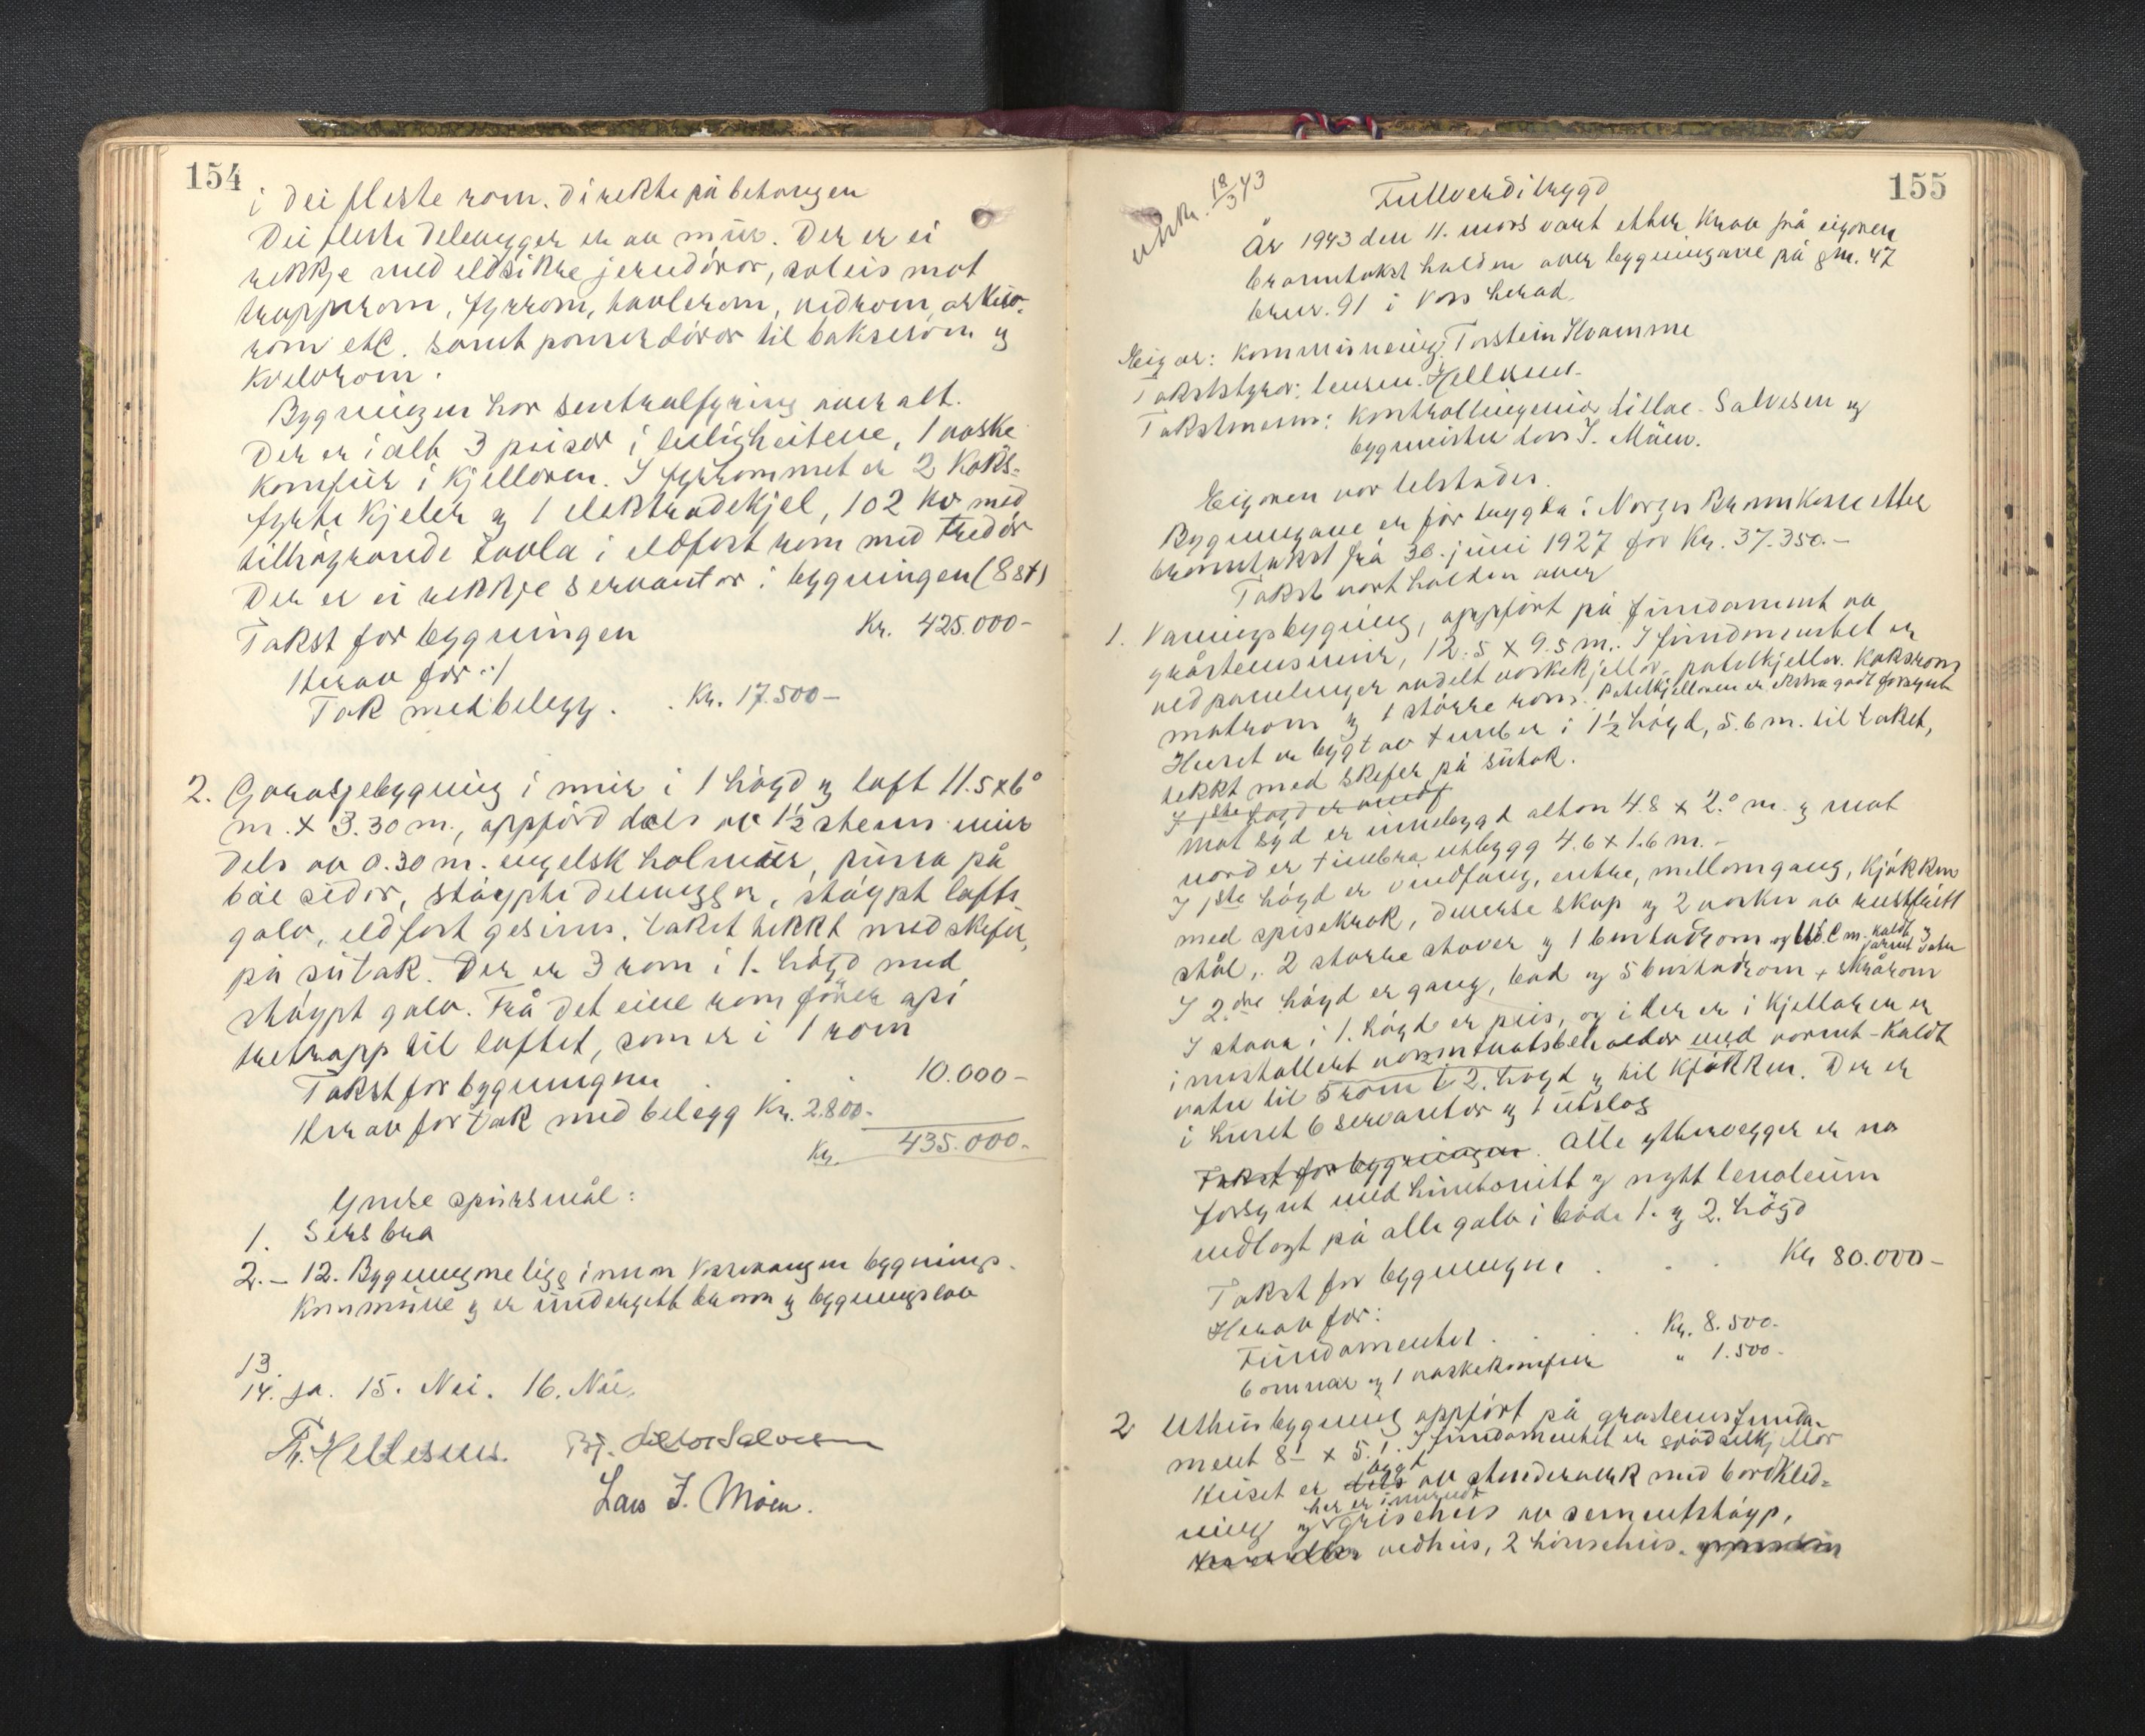 154
i dei fleste rom. direkte på betongen
Dei fleste delevegger er av mur. Der er ei
rekkje med eldsikre jerndörar, soleis mot
trapperom, fyrrom, tavlerom, vedrom, arkiv-
rom etc. samt panserdörar til boksrom og
kvelvrom.
Bygningen har sentralfyring over alt.
Der er ialt 3 peisar i leiligheitene, 1 vaske
komfur i kjellaren. I fyrrommet er 2 koks-
fyrte kjeler og 1 elektrodekjel, 102 kv med
tilhøyrande tavla i eldfast rom med tredör
Der er ei rekkje servantar i bygningen (8 st)
Takst for bygningen Kr. 425.000-
Herav for :/
Tak med belegg . . Kr. 17.500-
2. Garasjebygning i mur i 1 högd og loft 11.5 x 6.0
m. x 3.30 m., oppförd dels av 1½ steins mur
dels av 0.30 m. engelsk holmur, pussa på
båe sidor, stöypte delevegger, stöypt lofts
golv, eldfast gesims. taket tekkt med skifer
på sutak. Der er 3 rom i 1. högd med
stöypt golv. Frå det eine rom förer opi
tretrapp til loftet, som er i 1 rom
Takst for bygningen . . . 10.000-
Herav for tak med belegg Kr. 2.800-
Kr. 435.000-
Ymse spursmål:
1. Sers bra
2.- 12. Bygningane ligg innan Vossevangen bygnings-
kommune og er undergitt brann og bygningslov
13.
14. Ja. 15. Nei. 16. Nei.
Th. Hellesnes. Bj. Salvesen
Lars J. Möen.
155
utskr. 18/3 43
Fullverditrygd
År 1943 den 11. mars vart etter krav frå eigaren
branntakst halden over bygningane på gnr. 47
bnr. 91 i Voss herad.
Eigar: Kommisnering. Torstein Kvamme
Takststyrar: lensm. Hellesnes.
Takstmenn: Kontrollingeniör Salvesen og
bygmeister Lars J. Möen.
Eigaren var tilstades.
Bygningane er för trygda i Norges Brannkasse etter
branntakst frå 30. juni 1927 for Kr. 37.350.-
Takst vart halden over
1. Våningsbygning, oppfört på fundament av
gråsteinsmur, 12.5 x 9.5 m. I fundamentet er
ved panelinger avdelt vaskekjellar, potetkjellar. Koksrom
matrom og 1 större rom. Potetkjellaren er ekstra godt forsynt
Huset er bygt av tömber i 1½ högd, 5.6 m. til taket,
tekkt med skifer på sutak.
I 1ste högd er
Mot syd er innebygd altan 4.8 x 2.0 m. og mot
nord er timbra utbygg 4.6 x 1.6 m.-
I 1ste högd er vindfang, entre, mellomgang, kjökken
med spisekrok, diverse skap og 2 vasker av rustfritt
stål, 2 större stover og 1 betjentrom og W.C m. kaldt og
varmt vatn
I 2dre högd er gang, bad og 5 rom + skrårom
I stova i 1. högd er peis, og i der er i kjellaren er
innstallert varmtvatsbeholder med varmt-kaldt
vatn til 5 rom i 2. högd og til kjökken. Der er
i huset 6 servantar og 1 utslag
Takst for bygningen. Alle yttervegger er no
forsynt med huntonitt og nytt lenoleum
nedlagt på alle golv i både 1. og 2. högd
Takst for bygningen . . . Kr 80.000-
Herav for:
Fundamentet . . . Kr. 8.500-
bommar og 1 vaskekomfur " 1.500-
2 Uthusbygning oppfört på gråsteinsfunda-
ment 8- x 5.! I fundamentet er gjödselkjellar
bygt
Huset er dels av stenderverk med bordkled-
her er innreidt
ning og grisehus av sementstöyp,
vedhus, 2 hönsehus.